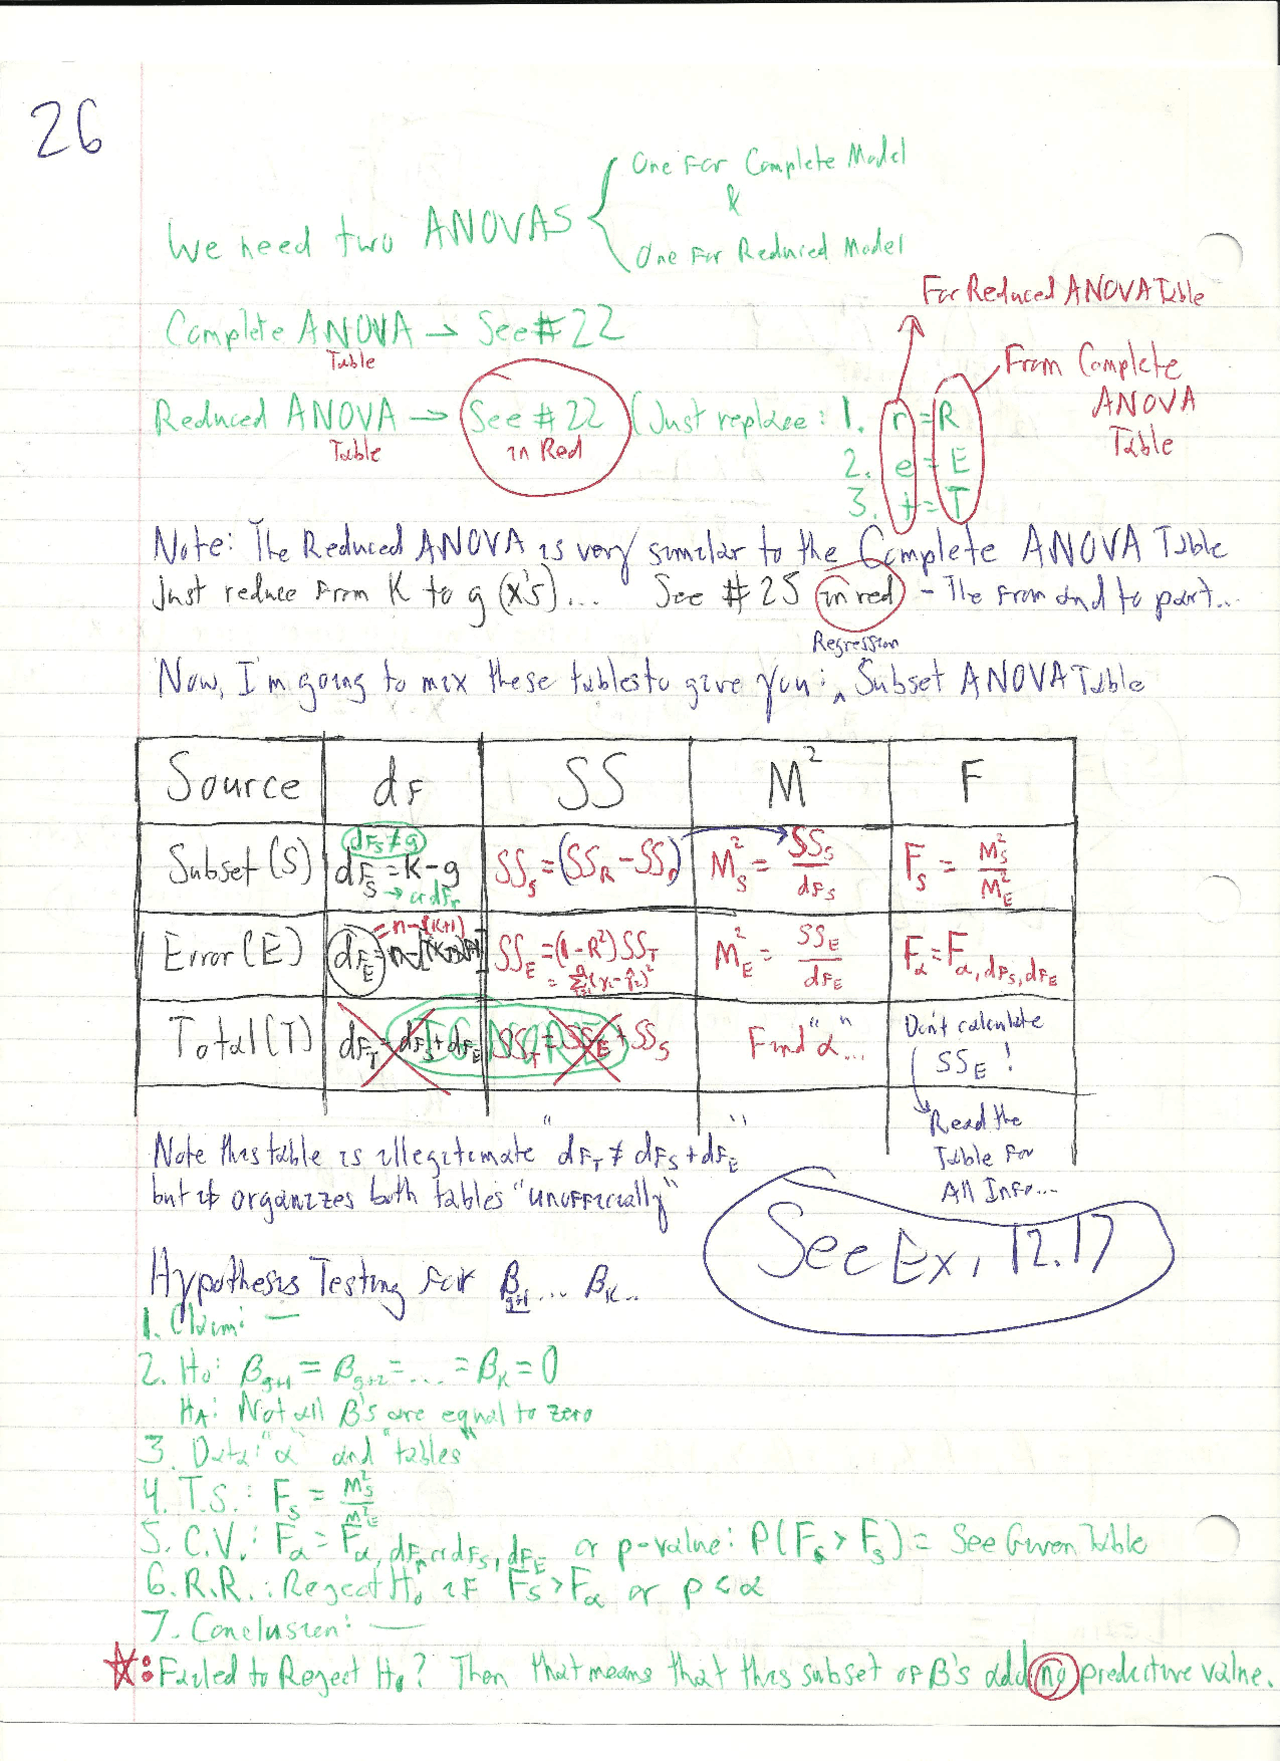 26
We need two ANOVAS
One For Complete Model
&
One For Reduced Model
For Reduced ANOVA Table
Complete ANOVA → See #22
Table
Reduced ANOVA → See #22 (Just replace: 1. r = R
Table
in Red
2. e = E
3. t = T
From Complete
ANOVA
Table
Note: The Reduced ANOVA is very similar to the Complete ANOVA Table
Just reduce From K to g (x's)... See #25 in red - The From and to part...
Now, I'm going to mix these tables to give you: ^ Subset ANOVA Table
Regression
Source dF SS M² F
Subset(S) dF_S ≠ g
dF_S = K-g
→ or dF_r
SS_S = (SS_R - SS_r) M²_S = SS_S / dF_S F_S = M²_S / M²_E
Error(E) dF_E = n-(K+1)
SS_E = (1-R²) SS_T
M²_E = SS_E / dF_E F_α = F_α, dF_S, dF_E
Total(T) dF_T = dF_S + dF_E SS_T = SS_E + SS_S Find "α"...
IGNORE
Don't calculate
SS_E !
Read the
Table For
All Info...
Note this table is illegitimate "dF_T ≠ dF_S + dF_E"
but it organizes both tables "unofficially"
See Ex. 12.17
Hypothesis Testing For β_g+1 ... β_K..
1. Claim: —
2. H₀: β_g+1 = β_g+2 = ... = β_K = 0
H_A: Not all β's are equal to zero
3. Data: "α" and "tables"
4. T.S.: F_S = M²_S / M²_E
5. C.V.: F_α = F_α, dF_r or dF_S, dF_E or p-value: P(F_S > F_S) = See Given Table
6. R.R.: Reject H₀ iF F_S > F_α or p < α
7. Conclusion: —
☆: Failed to Reject H₀? Then that means that this subset of β's add no predictive value.